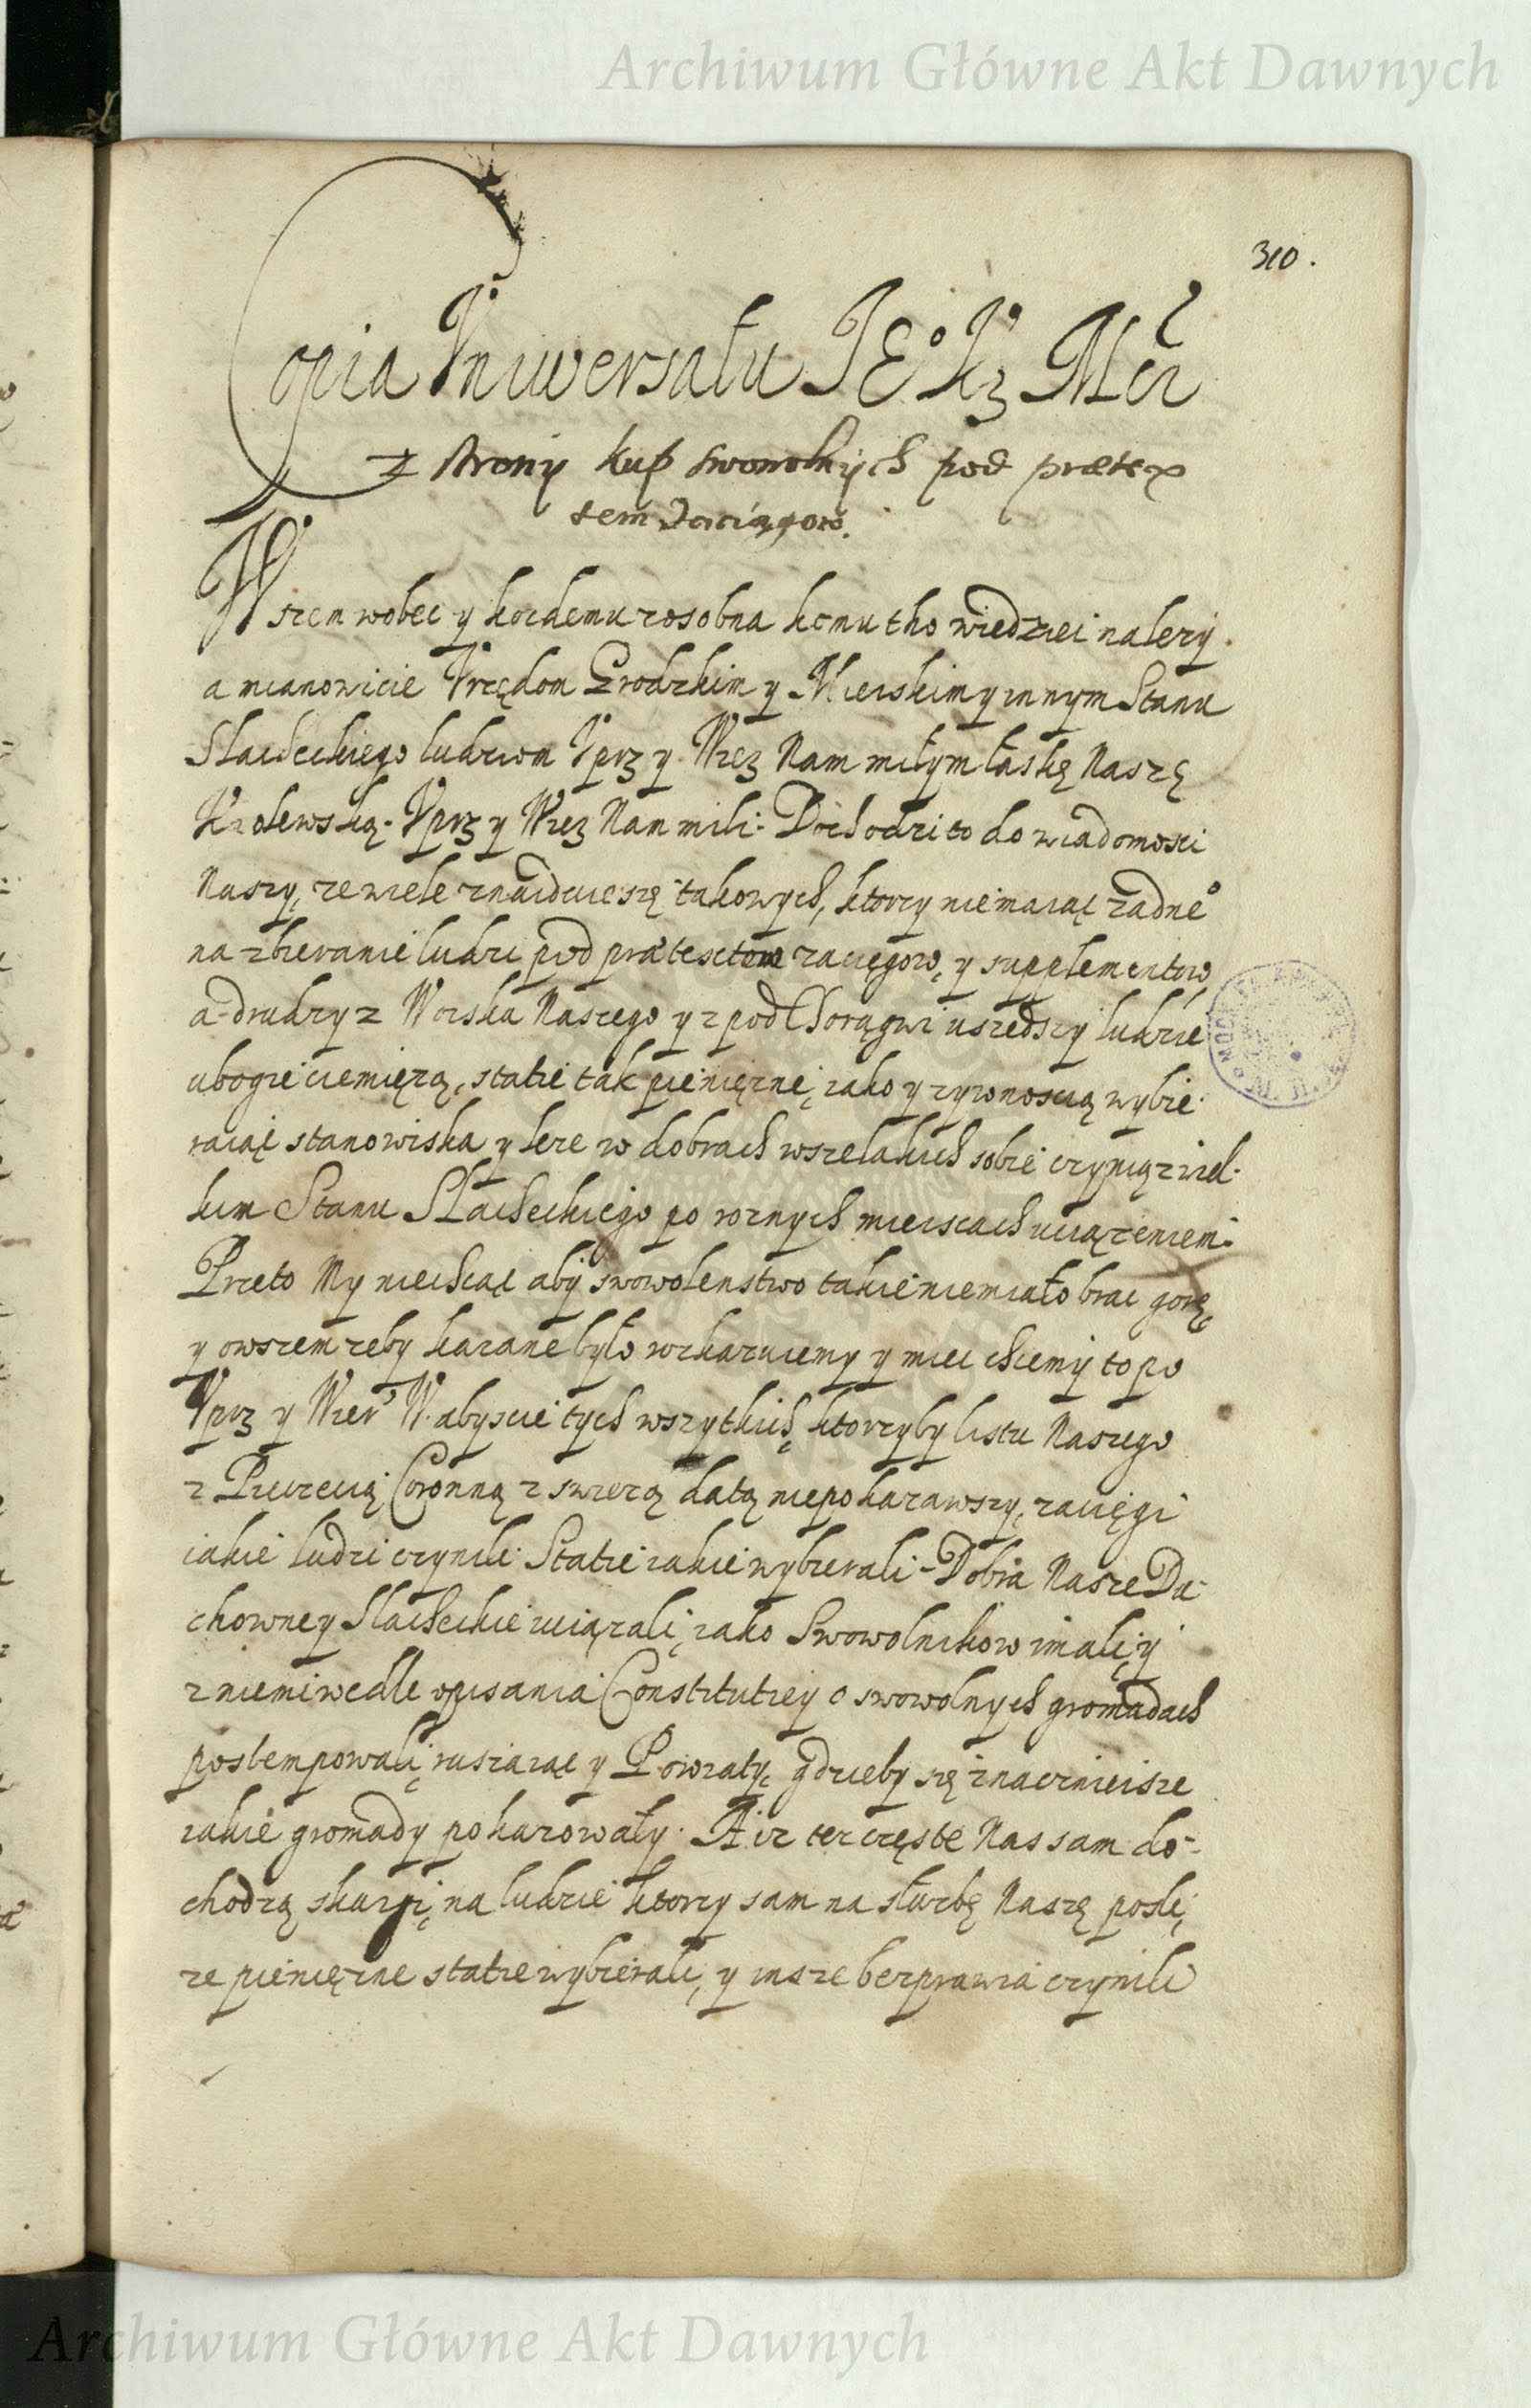 Archiwum Główne Akt Dawnych
310.
Copia Vniwersału JE° K₃ Mći
z strony kup swowolnych pod prætex
tem Zaciągow.
Wszem wobec y kożdemu zosobna komu tho wiedziei należy.
a mianowicie Vrzędom Grodzkim y Mieiskim y innym Stanu
Slacheckiego ludziom Vprz y Wiez Nam miłym łaskę Naszę
Krolewską. Vprz y Wiez Nam mili. Dochodzi to do wiadomosci
Naszy, ze wiele znaiduie się takowych, ktorzy nie maiąc żadne°
na zbieranie ludzi pod prætextem zaciągow, y supplementow,
a drudzy z Woiska Naszego y z pod Chorągwi uszedszy ludzie
ubogie ciemięzą, statie tak pieniężne, iako y zywnoscią wybie
raiąc stanowiska y leze w dobrach wszelakich sobie czynią z wiel-
kim Stanu Slacheckiego po roznych mieiscach uciązeniem.
Przeto My niechcąc aby swowolenstwo takie niemiało brac gorę,
y owszem zeby karane było wzkazuiemy y miec chcemy to po
Vprz y Wier W. abyscie tych wszytkich, ktorzyby listu Naszego
z Pieczecią Coronną z swieżą datą niepokazawszy, zacięgi
iakie ludzi czynili. Statie iakie wybierali. Dobra Nasze Du-
chowne y Slacheckie uciązali, iako Swowolnikow imali, y
z niemi wedle opisania Constitutiey o swowolnych gromadach
postempowali, ruszaiąc y Powiaty, gdzieby się znacznieisze
iakie gromady pokazowały. A iz tez częste Nas sam do-
chodzą skargi, na ludzie ktorzy sam na służbę Naszę poszli,
ze pieniężne statie wybierali, y insze bezprawia czynili
Archiwum Główne Akt Dawnych